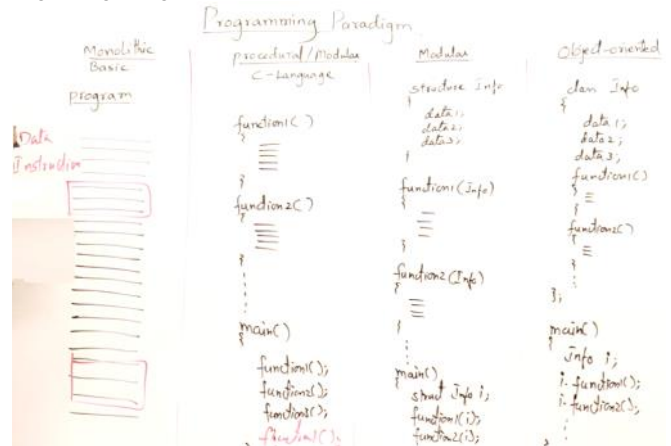 Programming Paradigm
Monolithic
Basic
program
Data
Instruction
procedural/Modular
C-Language
function1( )
{
}
function2( )
{
}
main( )
{
function1( );
function2( );
function3( );
function1( );
Modular
structure Info
{
data1;
data2;
data3;
}
function1(Info)
{
}
function2(Info)
{
}
main( )
{
struct Info i;
function1(i);
function2(i);
Object-oriented
class Info
{
data1;
data2;
data3;
function1( )
{
}
function2( )
{
}
};
main( )
{
Info i;
i. function1( );
i. function2( );
}